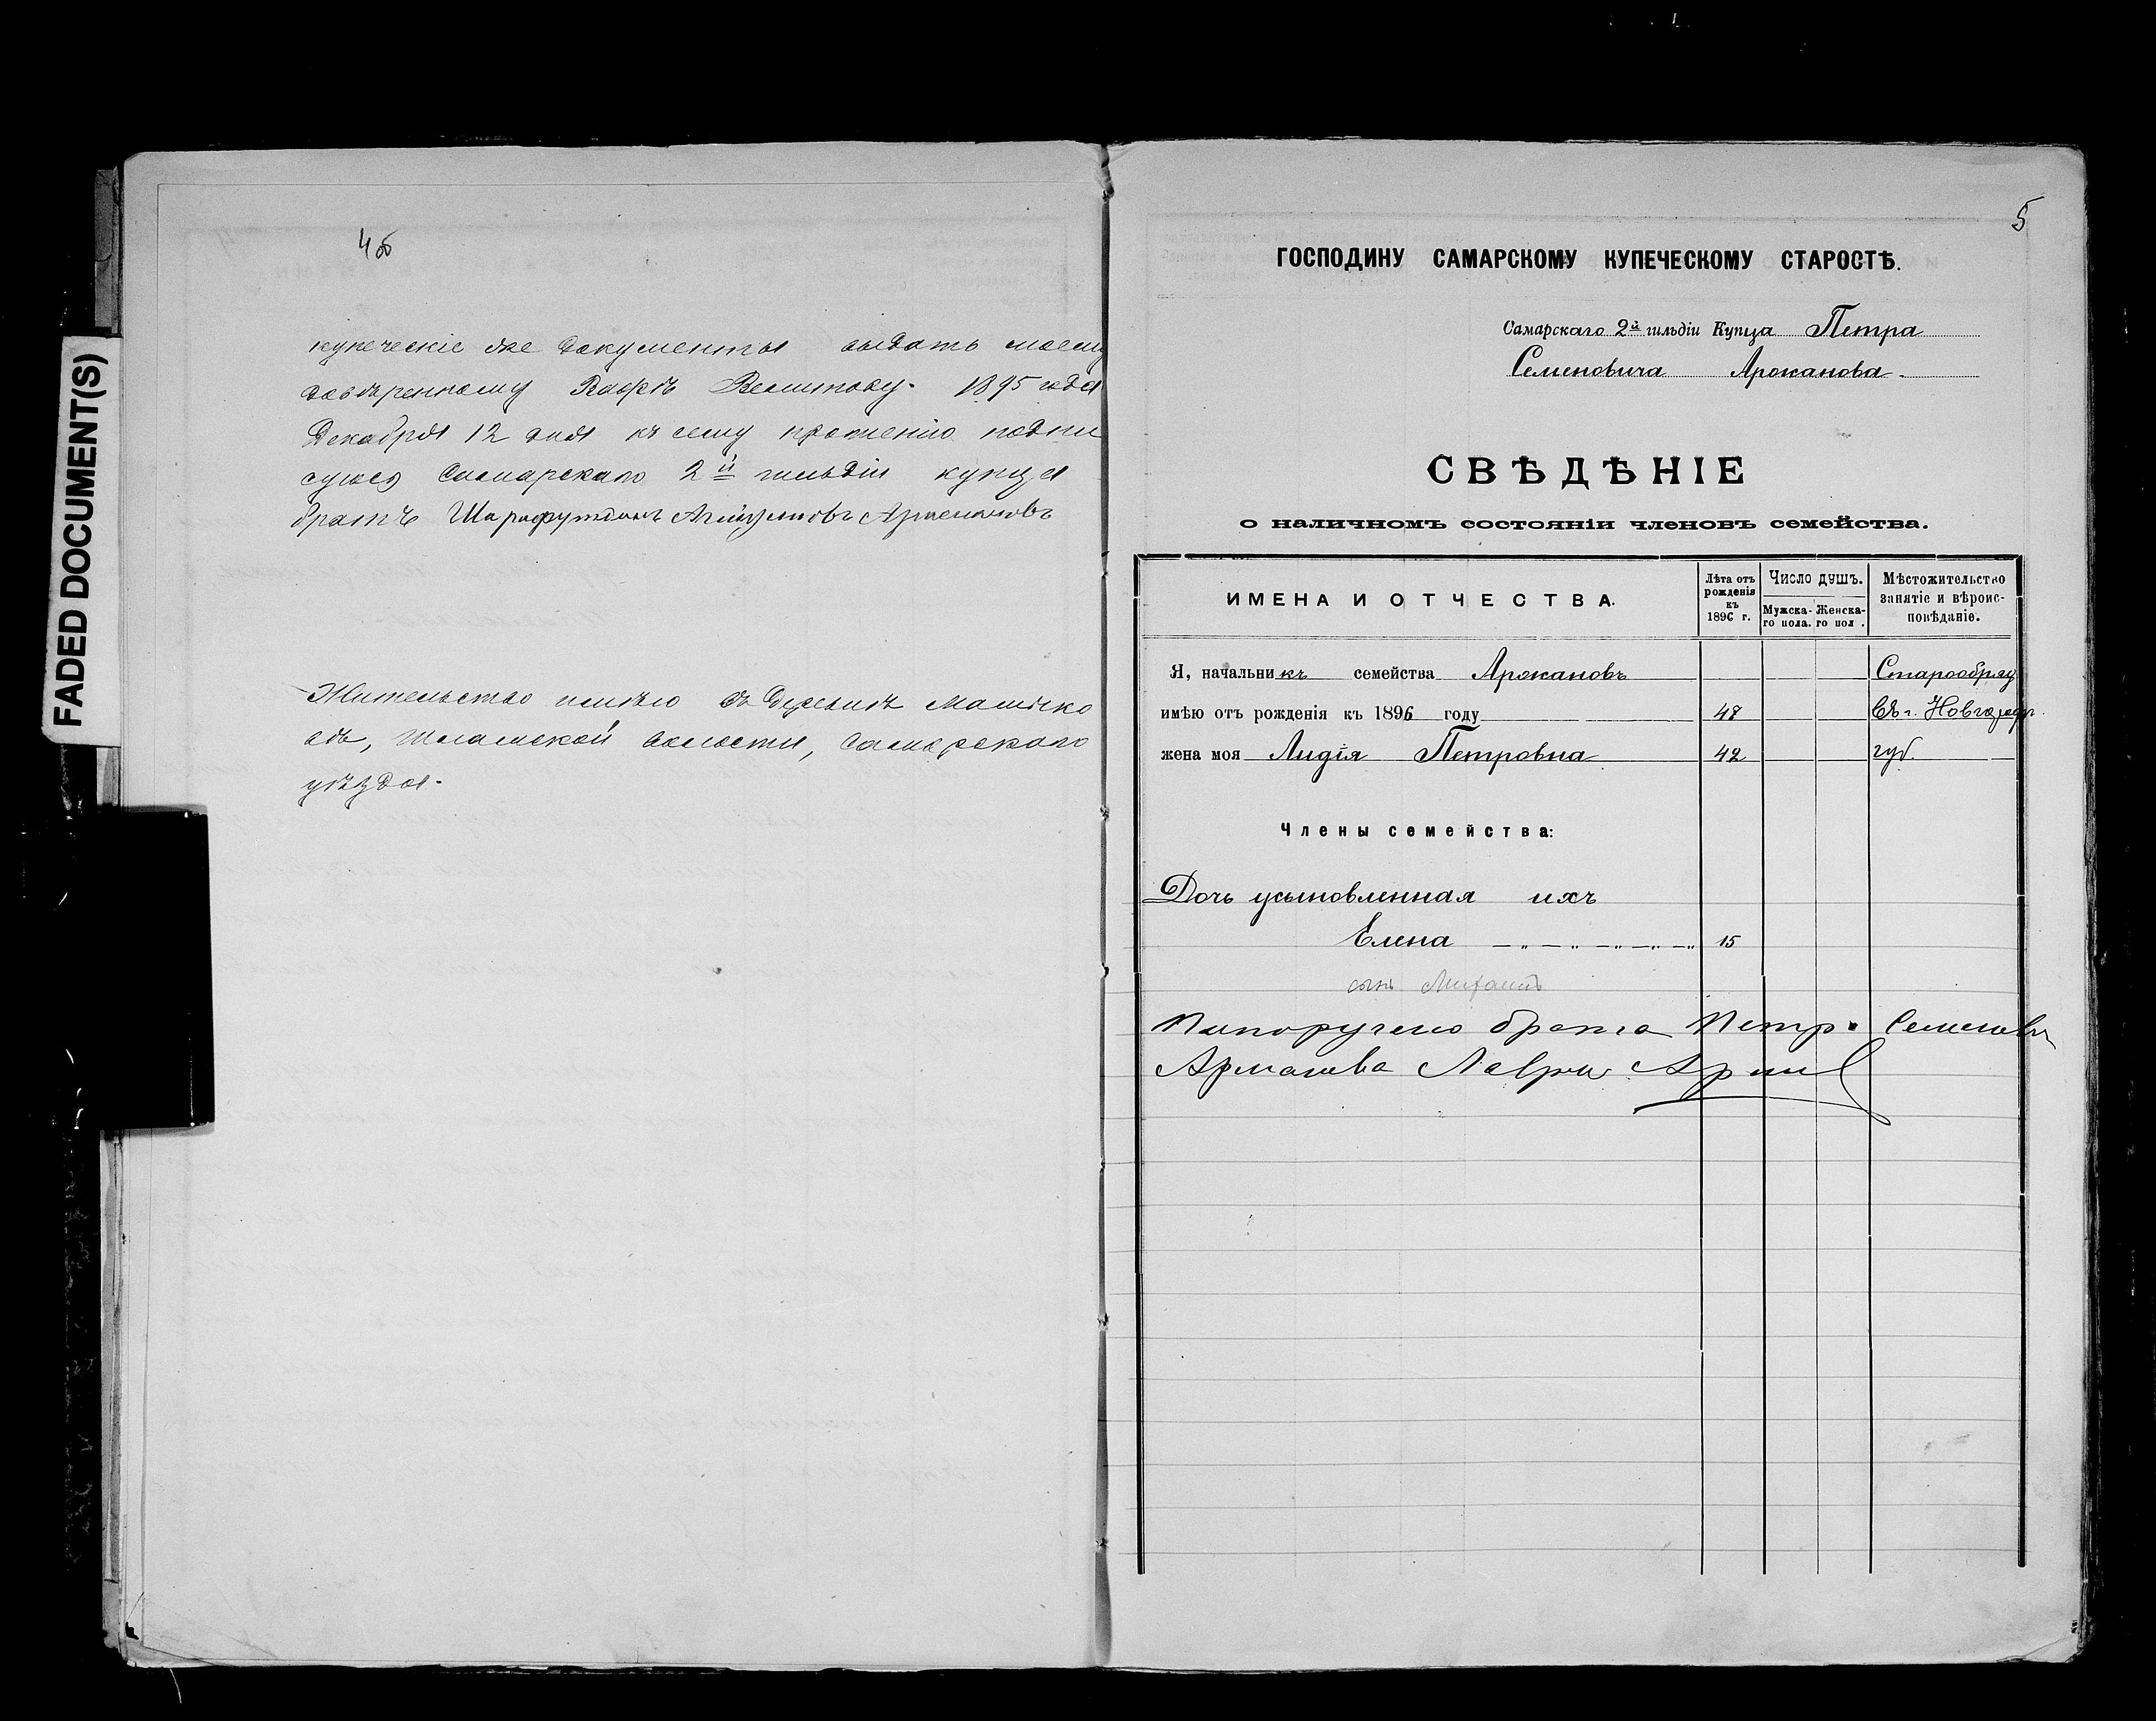 FADED DOCUMENT(S)
4об
купеческіе же документы выдать моему
довѣренному Вафѣ 1895 года
Декабря 12 дня къ сему прошенію подпи
суюсь Самарскаго 2й гильдіи купца
братъ Шарафутдинъ
Жительство имѣю въ деревнѣ
волости, Самарскаго
уѣзда.
5
ГОСПОДИНУ САМАРСКОМУ КУПЕЧЕСКОМУ СТАРОСТѢ.
Самарскаго 2й гильдіи Купца Петра
Семеновича Аржанова.
СВѢДѢНІЕ
о наличномъ состояніи членовъ семейства.
ИМЕНА И ОТЧЕСТВА.
Лѣта отъ рожденія къ 1896 г.
Число душъ.
Мужска-го пола. Женска-го пол .
Мѣстожительство занятіе и вѣроис-повѣданіе.
Я, начальникъ семейства Аржановъ Старообряд
имѣю отъ рожденія къ 1896 году 48 Въ г. Новгород
жена моя Лидія Петровна 42 губ.
Члены семейства:
Дочь усыновленная ихъ
Елена 15
сынъ Михаилъ
брата Петр. Семенови